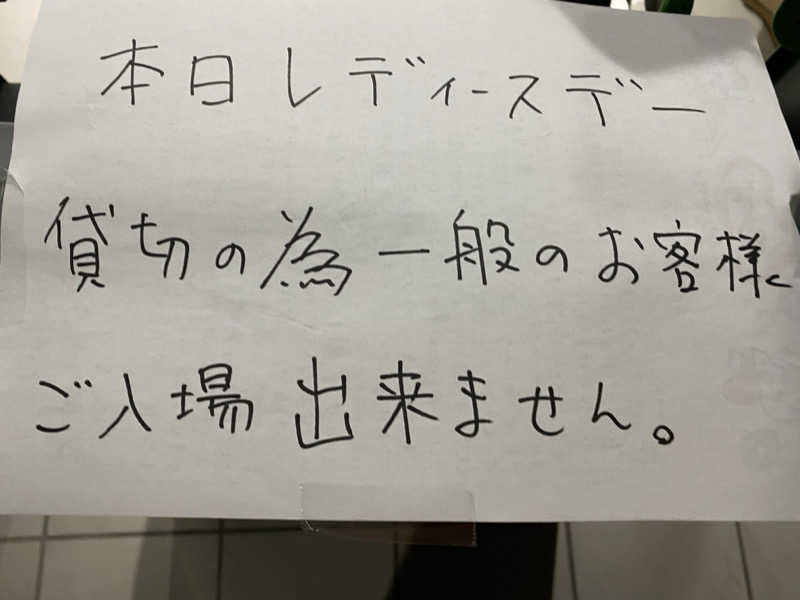 本日レディースデー
貸切の為一般のお客様
ご入場出来ません。